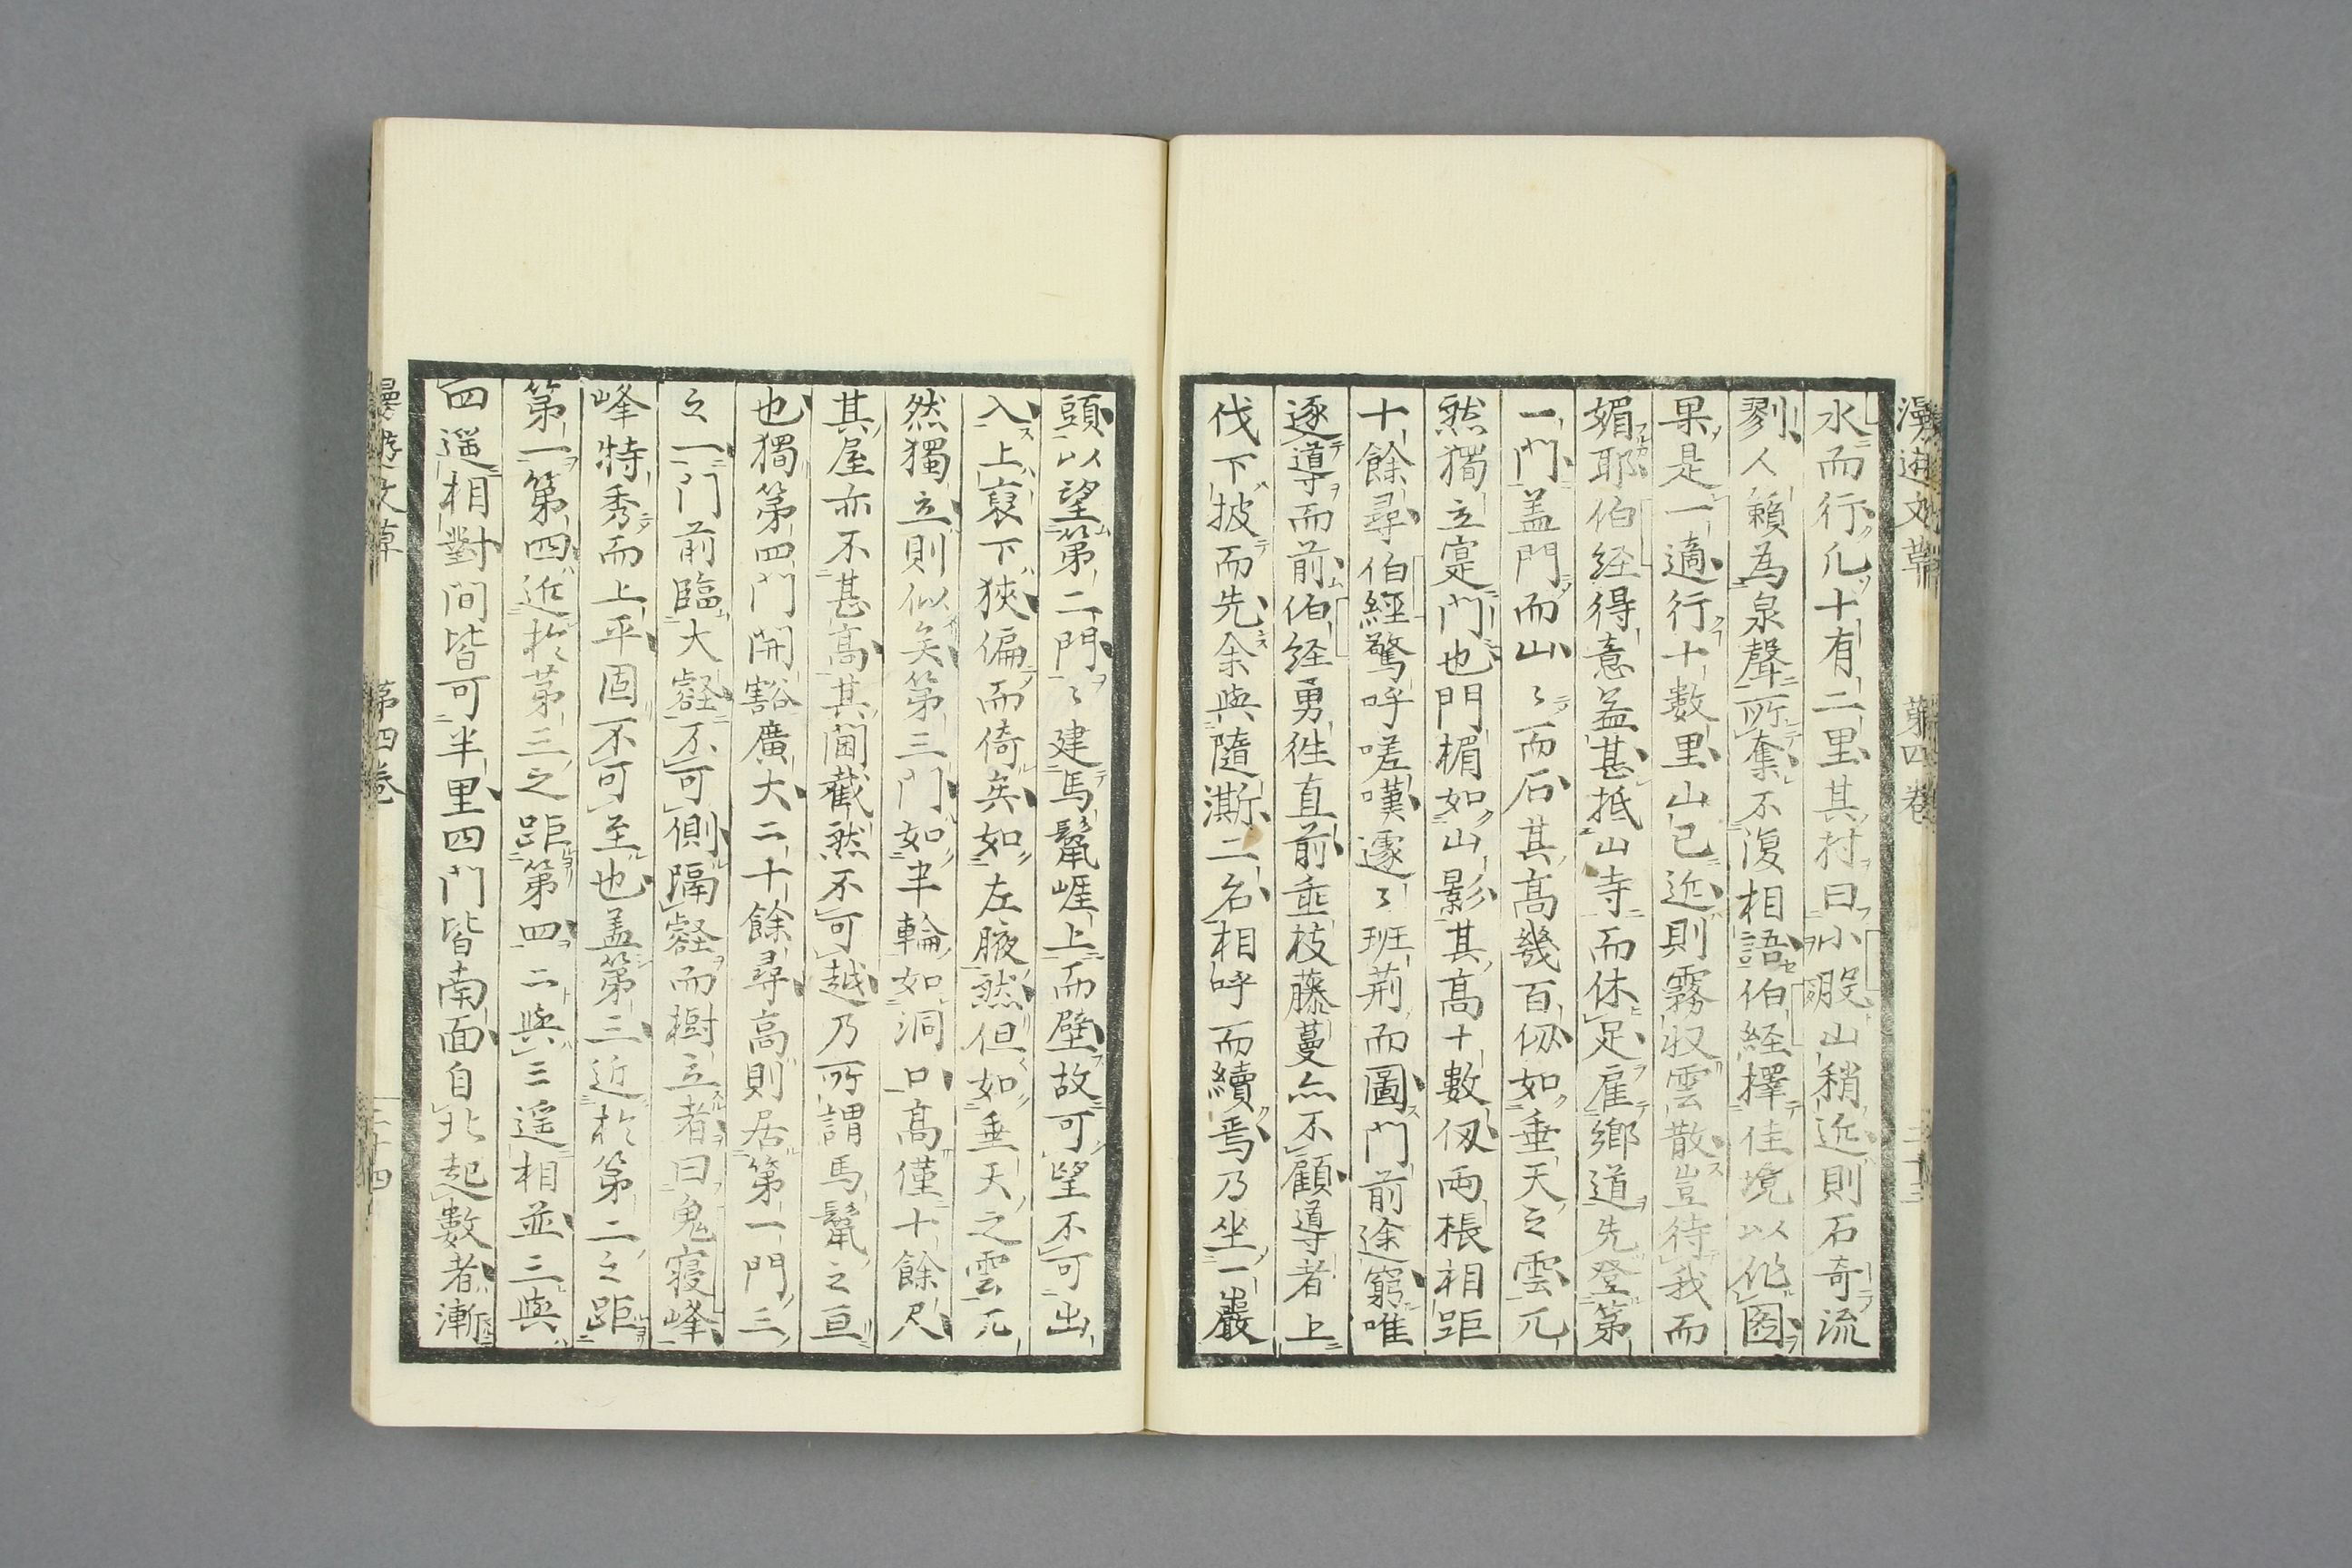 漫遊文草 第四卷 三十三
水而行凡十有二里其村曰小股山稍近則石奇流
冽人籟為泉聲所奪不復相語伯経擇佳境以作圖
果是一適行十數里山已近則霧収雲散豈待我而
媚耶伯経得意益甚抵山寺而休足雇鄉道先登第
一門盖門而山々而石其高幾百仭如垂天之雲兀
然獨立寔門也門楣如山影其高十數仭両棖相距
十餘尋伯經驚呼嗟嘆遽々班荊而圖門前途窮唯
逐導而前伯経勇徃直前垂枝藤蔓亦不顧導者上
伐下披而先余與隨澌二名相呼而續焉乃坐一巖
頭以望第二門々建馬鬣崕上而壁故可望不可出
入上裒下狹偏而倚矣如左腋然但如垂天之雲兀
然獨立則似矣第三門如半輪如洞口高僅十餘尺
其屋亦不甚高其閫截然不可越乃所謂馬鬣之亘
也獨第四門開豁廣大二十餘尋高則居第一門三
之一門前臨大壑不可側隔壑而樹立者曰鬼寝峰
峰特秀而上平固不可至也盖第三近於第二之距
第一第四近於第三之距第四二與三遥相並三與
四遥相對間皆可半里四門皆南面自北起數者漸
漫遊文草 第四卷 三十四